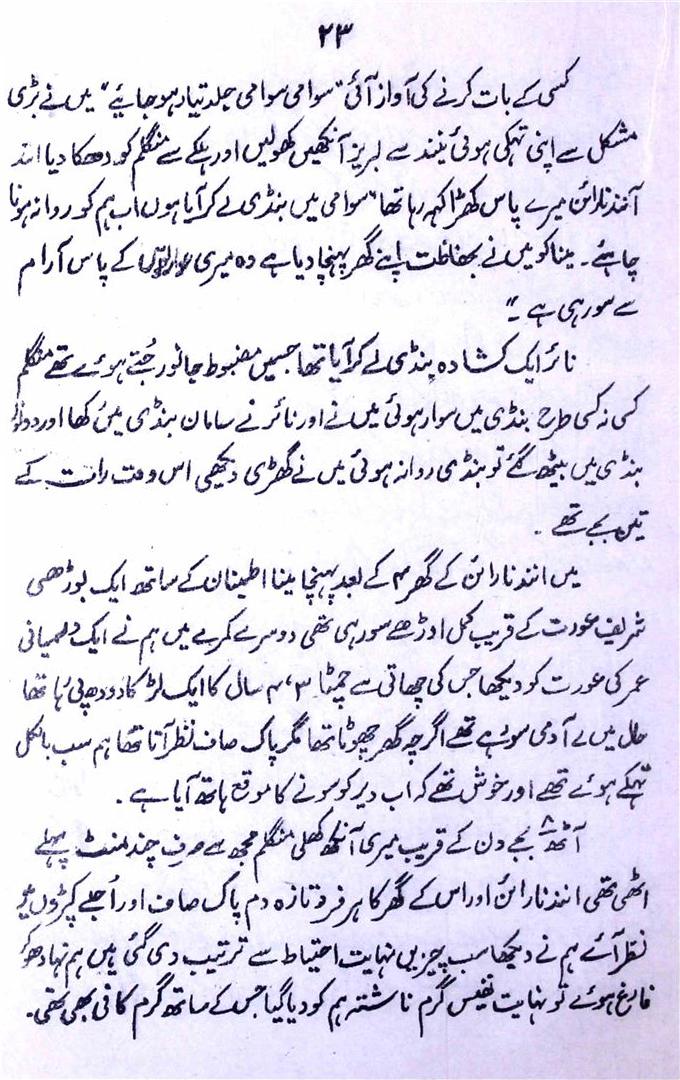 ۲۳
کسی کے بات کرنے کی آواز آئی "سوامی سوامی جلد تیار ہو جایئے" میں نے بڑی
مشکل سے اپنی تہکی ہوئی نیند سے لبریز آنکھیں کھولیں اور ہلکے سے منگلم کو دھکا دیا انند
آنند نارائن میرے پاس کھڑا کہہ رہا تھا "سوامی میں بنڈی لے کر آیا ہوں اب ہم کو روانہ ہونا
چاہئے۔ مینا کو میں نے بحفاظت اپنے گھر پہنچا دیا ہے وہ میری کے پاس آرام
سے سو رہی ہے۔"
نائر ایک کشادہ بنڈی لے کر آیا تھا جسمیں مضبوط جانور جُتے ہوئے تھے منگلم
کسی نہ کسی طرح بنڈی میں سوار ہوئی میں نے اور نائر نے سامان بنڈی میں رکھا اور دونوں
بنڈی میں بیٹھ گئے تو بنڈی روانہ ہوئی میں نے گھڑی دیکھی اس وقت رات کے
تین بجے تھے۔
میں انند نارائن کے گھر ۴ کے بعد پہنچا مینا اطینان کے ساتھ ایک بوڑھی
شریف عورت کے قریب کمل اوڑھے سو رہی تھی دوسرے کمرے میں ہم نے ایک درمیانی
عمر کی عورت کو دیکھا جس کی چھاتی سے چمٹا ۳، ۴ سال کا ایک لڑکا دودھ پی رہا تھا
ہال میں ۲ آدمی سو رہے تھے اگرچہ گھر چھوٹا تھا مگر پاک صاف نظر آتا تھا ہم سب بالکل
تہکے ہوئے تھے اور خوش تھے کہ اب دیر کو سونے کا موقع ہاتھ آیا ہے۔
آٹھ ۸ بجے دن کے قریب میری آنکھ کھلی منگلم مجھ سے صرف چند منٹ پہلے
اٹھی تھی انند نارائن اور اس کے گھر کا ہر فرد تازہ دم پاک صاف اور اُجلے کپڑوں میں
نظر آئے ہم نے دیکھا سب چیزیں نہایت احتیاط سے ترتیب دی گئی ہیں ہم نہا دھو کر
فارغ ہوئے تو نہایت نفیس گرم ناشتہ ہم کو دیا گیا جس کے ساتھ گرم کافی بھی تھی۔